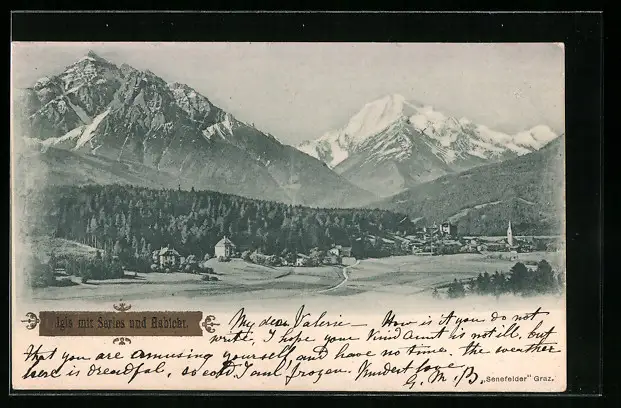 Igls mit Serles und Habicht.
My dear Valerie — How is it you do not
write, I hope your Kind Aunt is not ill, but
that you are amusing yourself, and have no time. The weather
here is dreadful, so cold I am frozen. Kindest love
G. M. B.
„Senefelder" Graz.